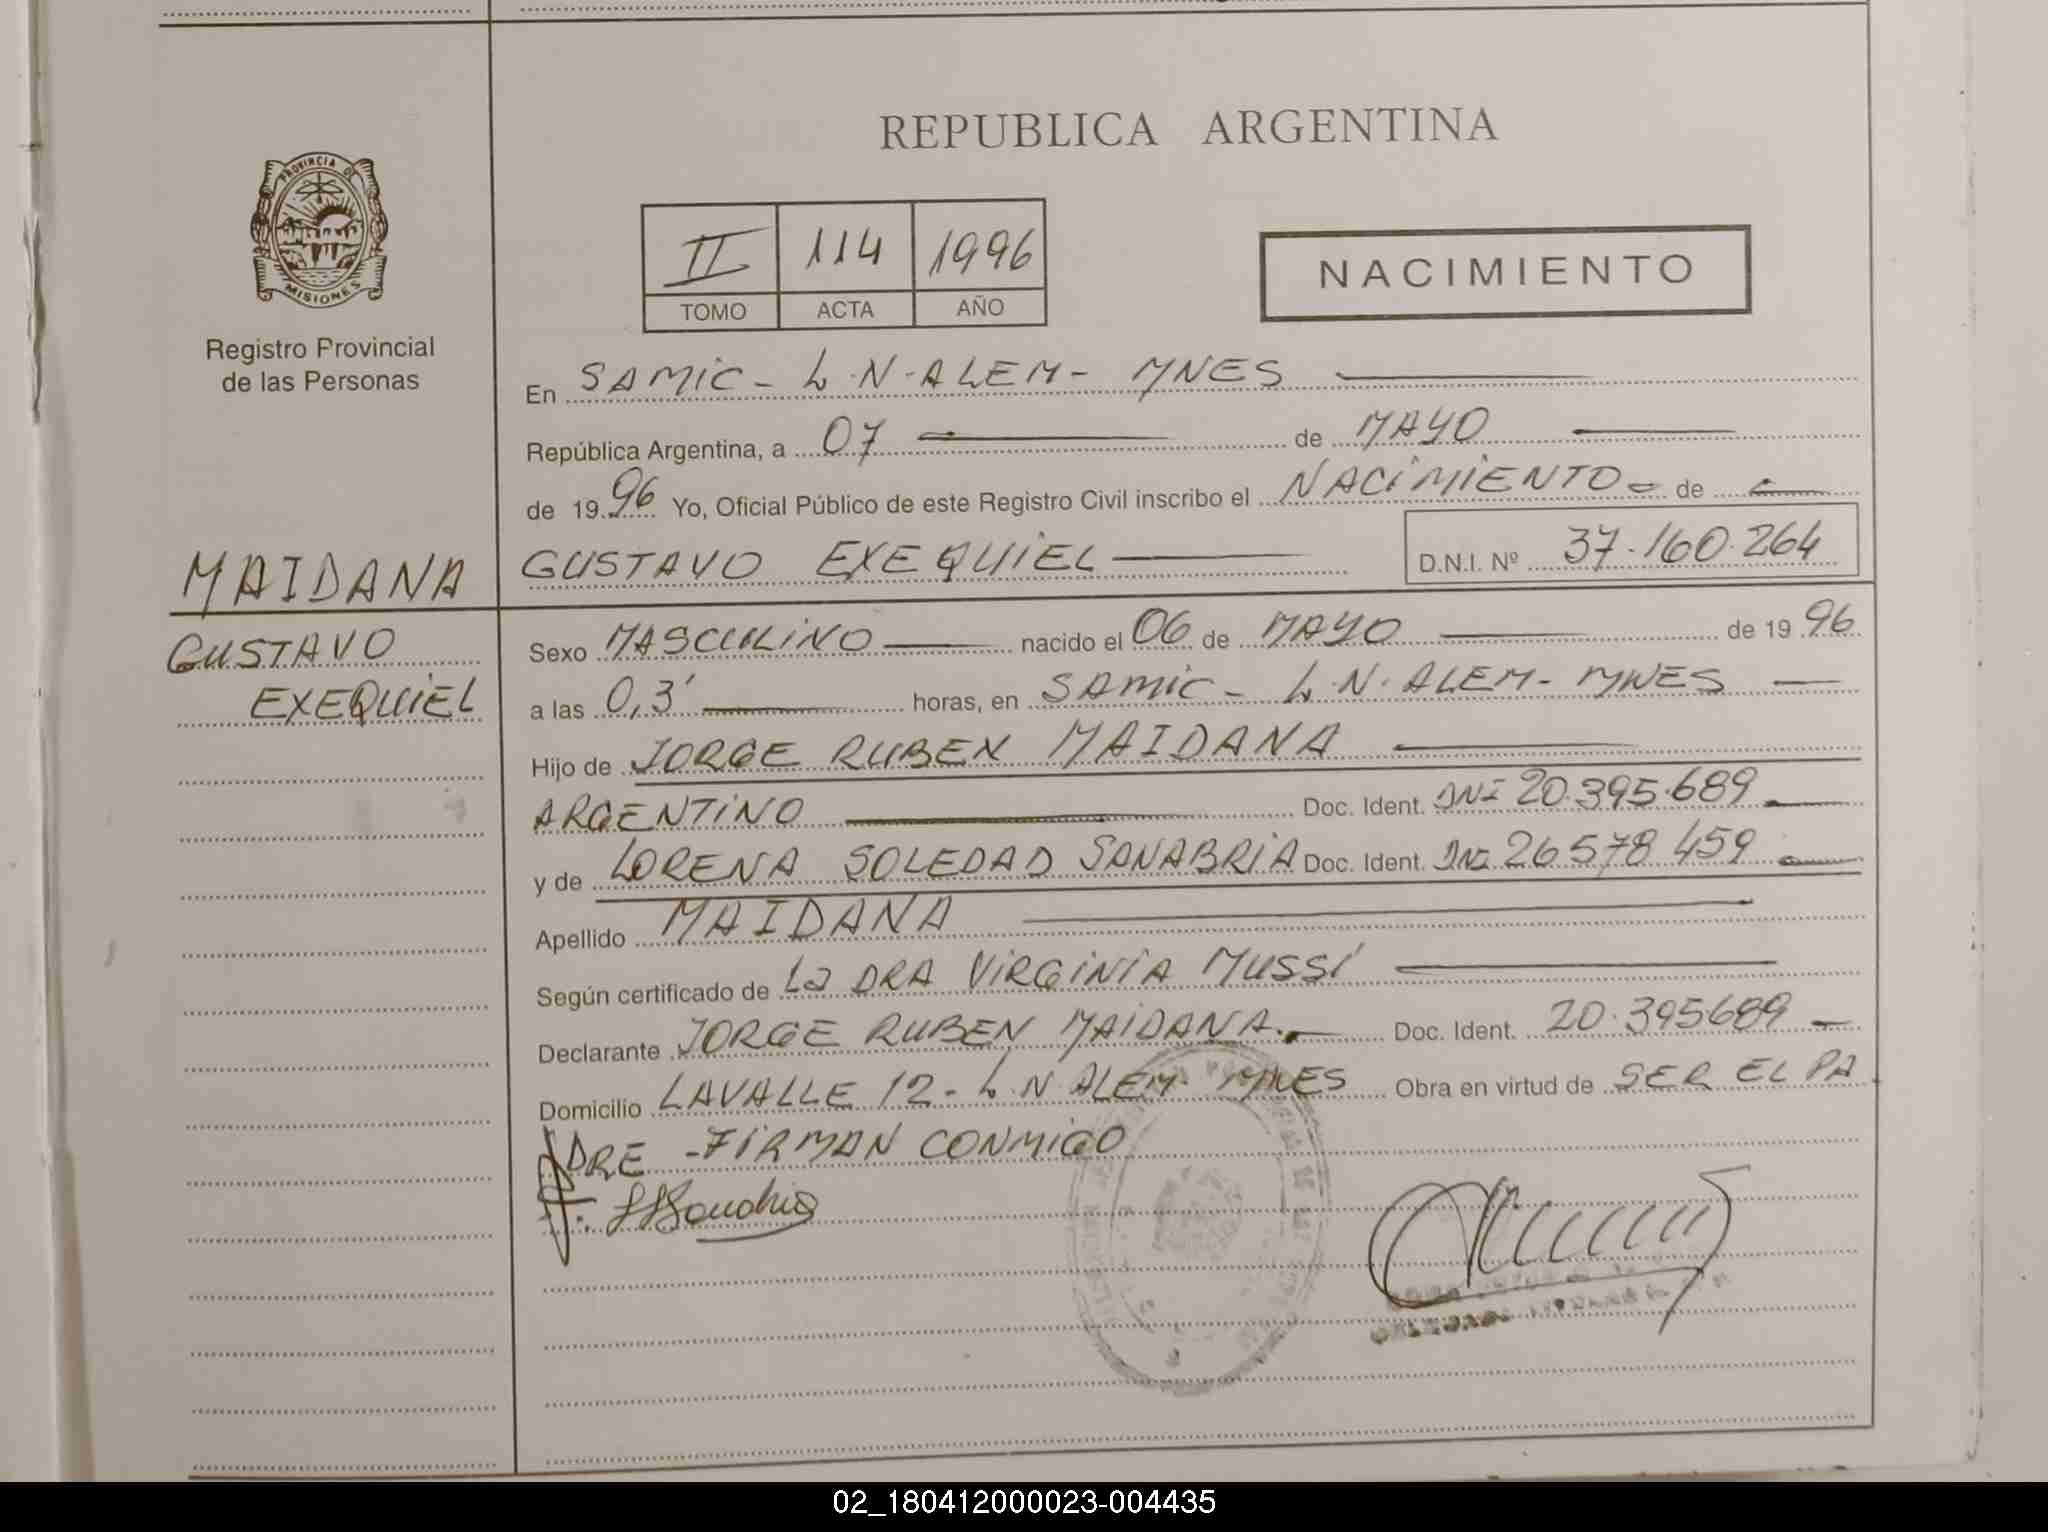 REPUBLICA ARGENTINA
PROVINCIA DE
MISIONES
Registro Provincial
de las Personas
II 114 1996
TOMO ACTA AÑO
NACIMIENTO
En SAMIC - L.N. ALEM - MNES
República Argentina, a 07 de MAYO
de 1996 Yo, Oficial Público de este Registro Civil inscribo el NACIMIENTO de
MAIDANA
GUSTAVO EXEQUIEL D.N.I. Nº 37.160.264
GUSTAVO
EXEQUIEL
Sexo MASCULINO nacido el 06 de MAYO de 1996
a las 0,3' horas, en SAMIC - L.N. ALEM - MNES
Hijo de JORGE RUBEN MAIDANA
ARGENTINO Doc. Ident. DNI 20.395.689
y de LORENA SOLEDAD SANABRIA Doc. Ident. DNI 26578459
Apellido MAIDANA
Según certificado de La DRA VIRGINIA MUSSI
Declarante JORGE RUBEN MAIDANA. Doc. Ident. 20.395689
Domicilio LAVALLE 12 - L.N ALEM - MNES Obra en virtud de SER EL PA
DRE - FIRMAN CONMIGO
02_180412000023-004435